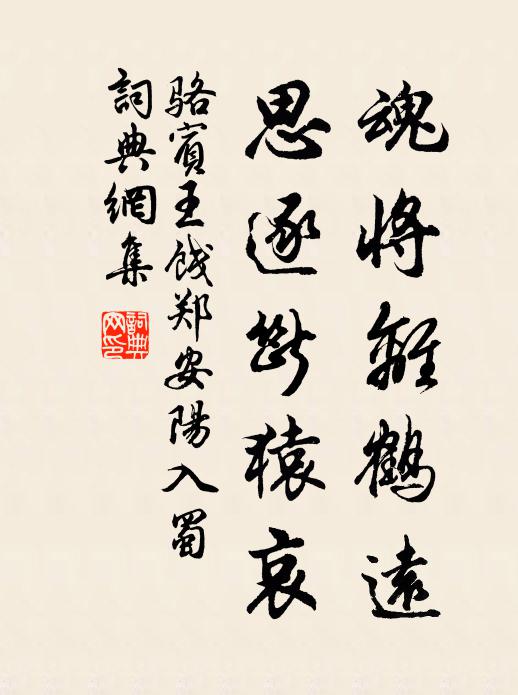 魂將離鶴遠
思逐斷猿哀
骆賓王饯郑安陽入蜀
詞典網集
詞典網印